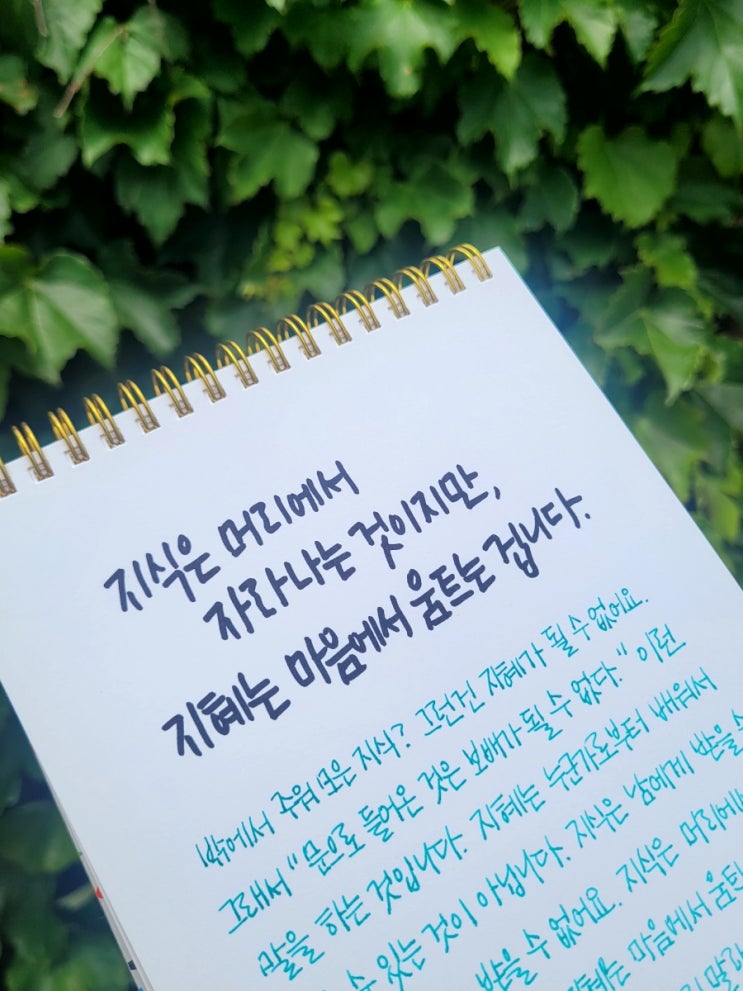 지식은 머리에서
자라나는 것이지만,
지혜는 마음에서 움트는 겁니다.
밖에서 주워 모은 지식? 그런건 지혜가 될 수 없어요.
그래서 "문으로 들어온 것은 보배가 될 수 없다." 이런
말을 하는 것입니다. 지혜는 누군가로부터 배워서
수 있는 것이 아닙니다. 지식은 남에게 받을 수
받을 수 없어요. 지식은 머리에
지혜는 마음에서 움튼